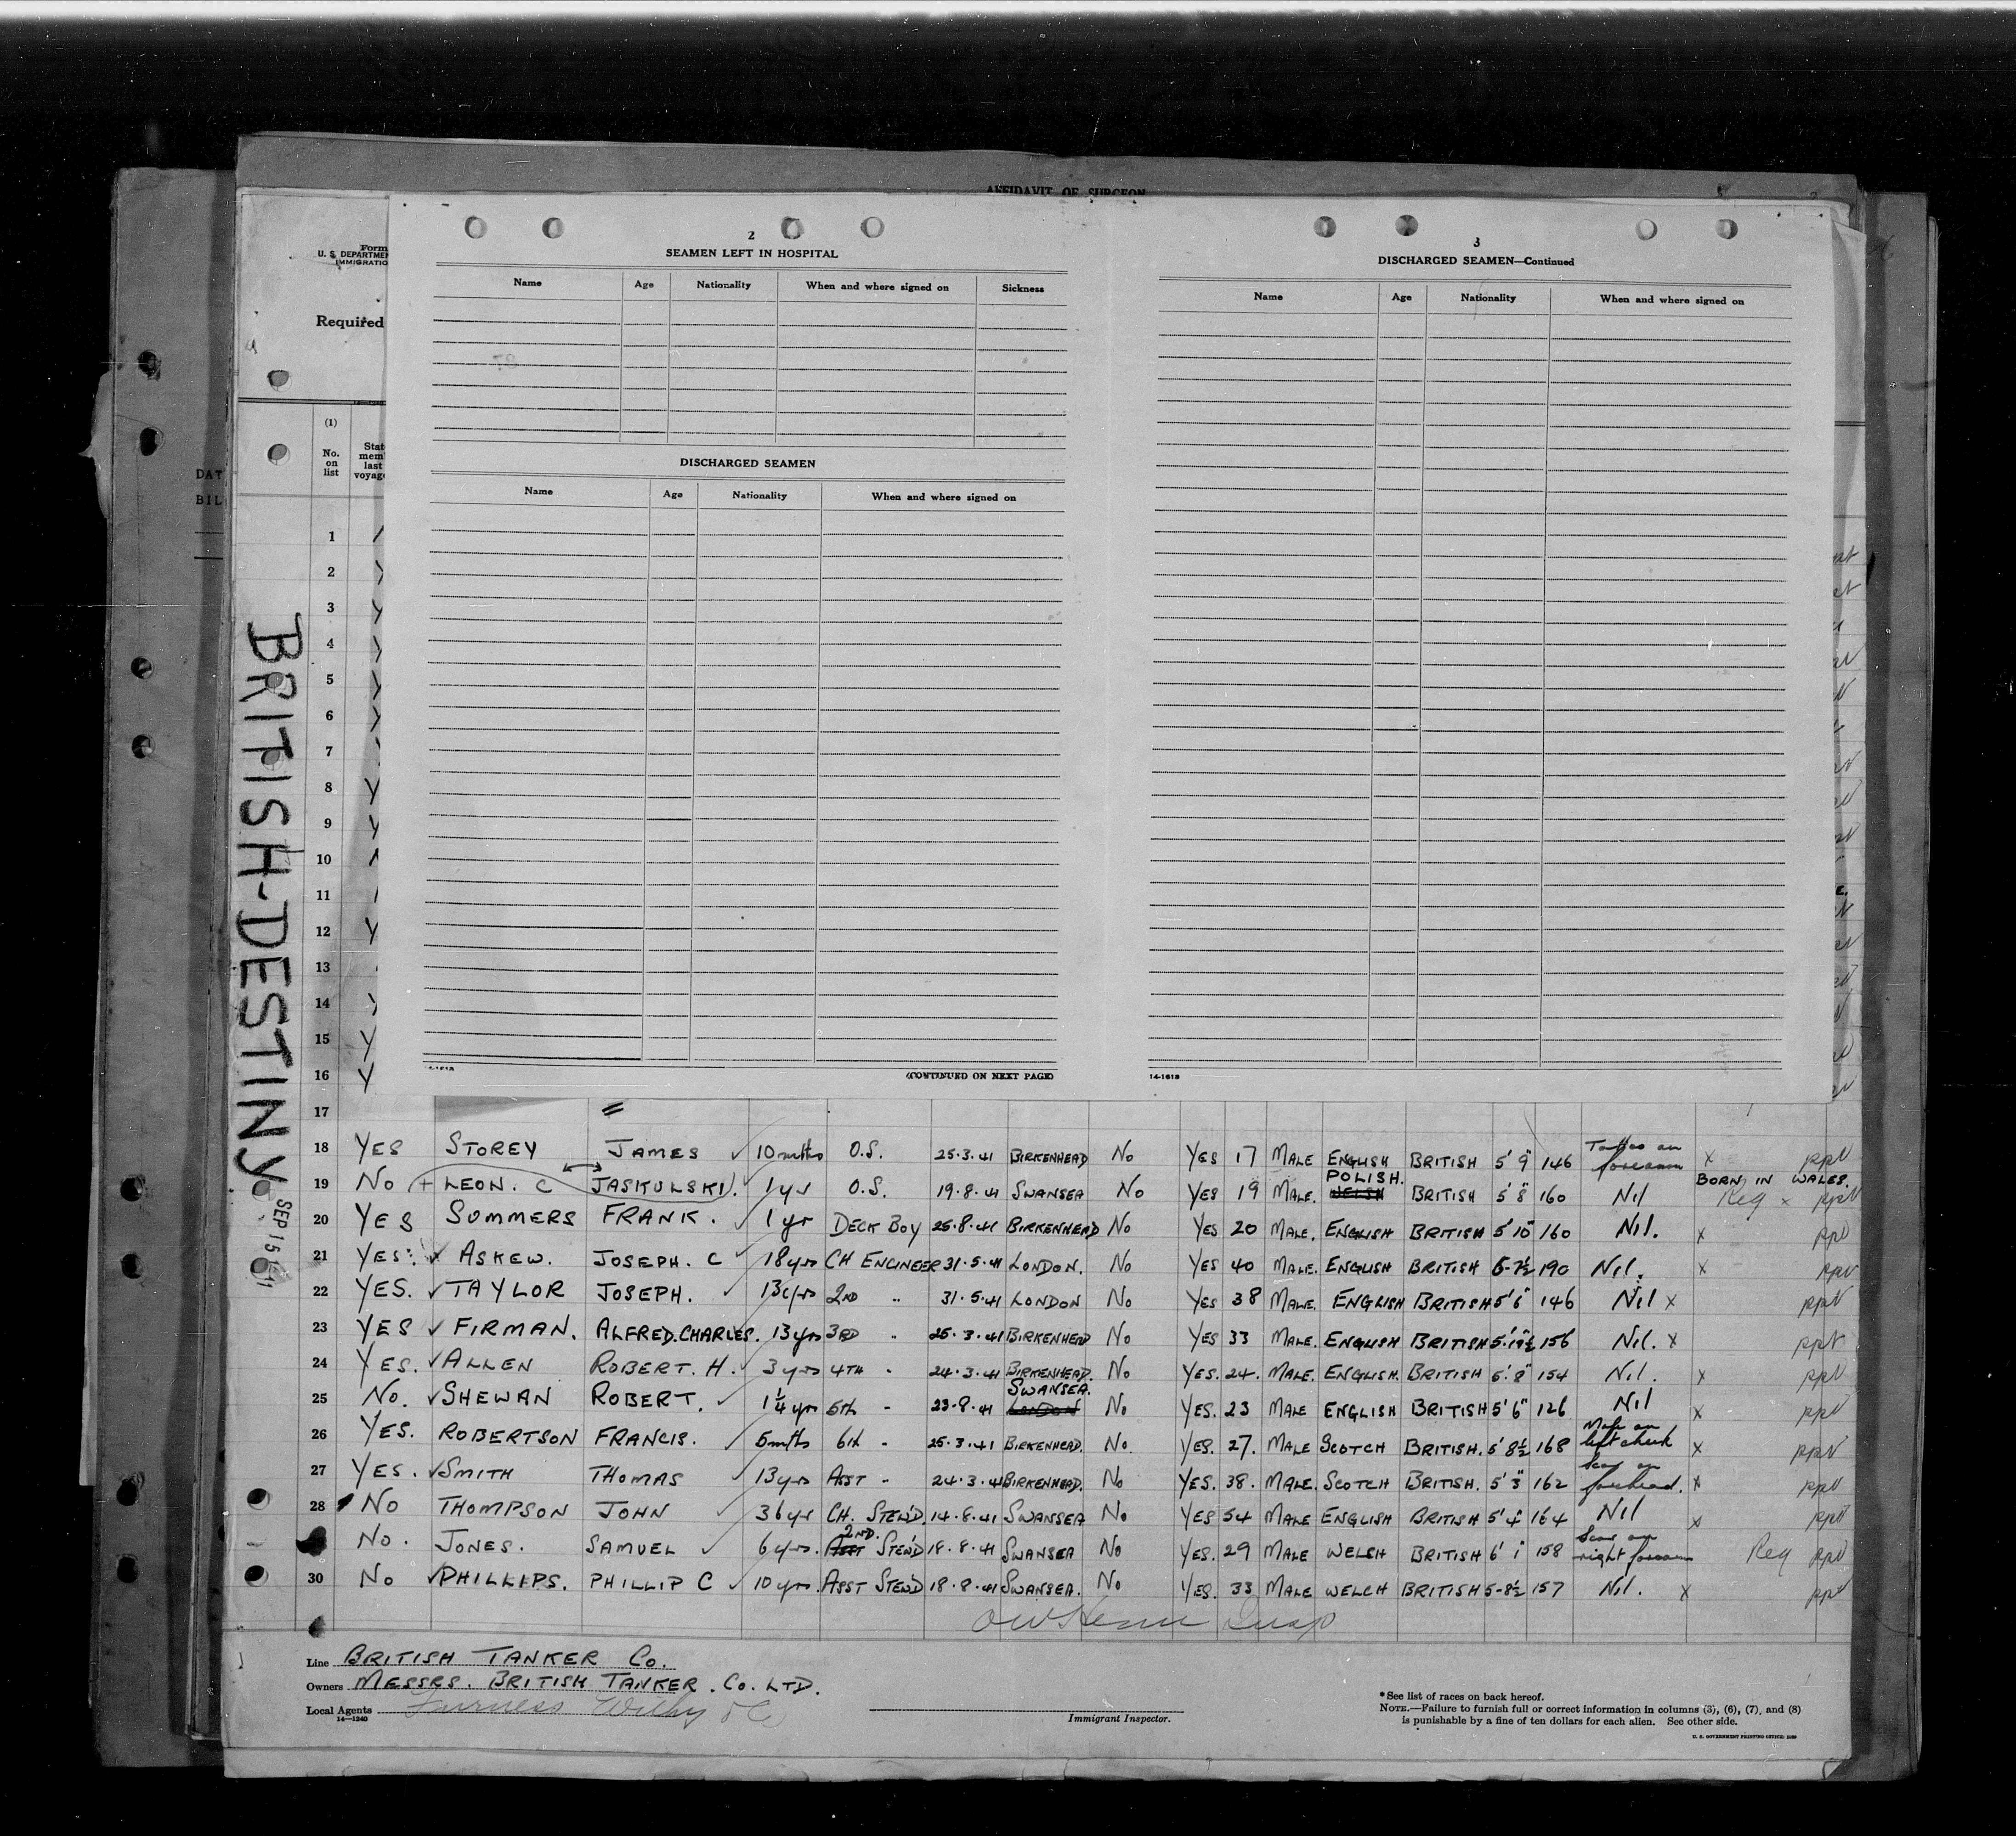 AFFIDAVIT OF SURGEON
Form
U. S. DEPARTMEN
IMMIGRATIO
Required
DAT
BIL
(1)
No. on list
State
mem
last
voyage
2
SEAMEN LEFT IN HOSPITAL
Name Age Nationality When and where signed on Sickness
DISCHARGED SEAMEN
Name Age Nationality When and where signed on
(CONTINUED ON NEXT PAGE)
3
DISCHARGED SEAMEN—Continued
Name Age Nationality When and where signed on
14-1618
BRITISH-DESTINY
SEP 15
1
2
3
4
5
6
7
8 Y
9 Y
10
11
12 Y
13
14 Y
15 Y
16 Y
17 =
18 YES STOREY JAMES ✓ 10 mths O.S. 25.3.41 BIRKENHEAD No YES 17 MALE ENGLISH BRITISH 5' 9" 146 Tattoo on forearm x ppt
19 No + LEON. C JASKULSKI. ✓ 1 yr O.S. 19.8.41 SWANSEA No YES 19 MALE. POLISH. WELSH BRITISH 5' 8" 160 Nil BORN IN WALES. Reg x ppt
20 YES SUMMERS FRANK. ✓ 1 yr DECK BOY 25.8.41 BIRKENHEAD No YES 20 MALE. ENGLISH BRITISH 5' 10" 160 Nil. x ppt
21 YES. x ASKEW. JOSEPH. C ✓ 18 yrs CH ENGINEER 31.5.41 LONDON. No YES 40 MALE. ENGLISH BRITISH 5-7½ 190 Nil. x ppt
22 YES. ✓ TAYLOR JOSEPH. ✓ 13 yrs 2ND " 31.5.41 LONDON No YES 38 MALE. ENGLISH BRITISH 5' 6" 146 Nil x ppt
23 YES ✓ FIRMAN. ALFRED.CHARLES. 13 yrs 3RD " 25.3.41 BIRKENHEAD No YES 33 MALE. ENGLISH BRITISH 156 Nil. x ppt
24 YES. ✓ ALLEN ROBERT. H. ✓ 3 yrs 4TH " 24.3.41 BIRKENHEAD. No YES. 24. MALE. ENGLISH. BRITISH 5' 8" 154 Nil. x ppt
25 No. ✓ SHEWAN ROBERT. ✓ 1¼ yrs 5th " 23.8.41 SWANSEA. LONDON No YES. 23 MALE ENGLISH BRITISH 5' 6" 126 Nil x ppt
26 YES. ROBERTSON FRANCIS. ✓ 5 mths 6th " 25.3.41 BIRKENHEAD. No. YES. 27. MALE SCOTCH BRITISH. 5' 8½ 168 Mole on left cheek x ppt
27 YES. ✓ SMITH THOMAS ✓ 13 yrs ASST " 24.3.41 BIRKENHEAD. No YES. 38. MALE. SCOTCH BRITISH. 5' 3" 162 Scar on forehead. x ppt
28 No THOMPSON JOHN ✓ 36 yr CH. STEW'D. 14.8.41 SWANSEA No YES 54 MALE ENGLISH BRITISH 5' 4" 164 Nil x ppt
No. JONES. SAMUEL ✓ 6 yrs. 2ND. ASST STEW'D 18.8.41 SWANSEA No YES. 29 MALE WELSH BRITISH 6' 1" 158 Scar on right forearm Reg ppt
30 No ✓ PHILLIPS. PHILLIP C ✓ 10 yrs. ASST STEW'D 18.8.41 SWANSEA. No YES. 33 MALE WELCH BRITISH 5-8½ 157 Nil. x ppt
Line BRITISH TANKER Co.
Owners MESSRS. BRITISH TANKER. Co. LTD.
Local Agents Furness Withy & Co
14—1240
Immigrant Inspector.
* See list of races on back hereof.
NOTE.—Failure to furnish full or correct information in columns (3), (6), (7), and (8)
is punishable by a fine of ten dollars for each alien. See other side.
U. S. GOVERNMENT PRINTING OFFICE